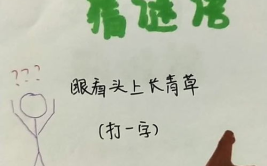 猜谜语
???
眼看头上长青草
(打一字)